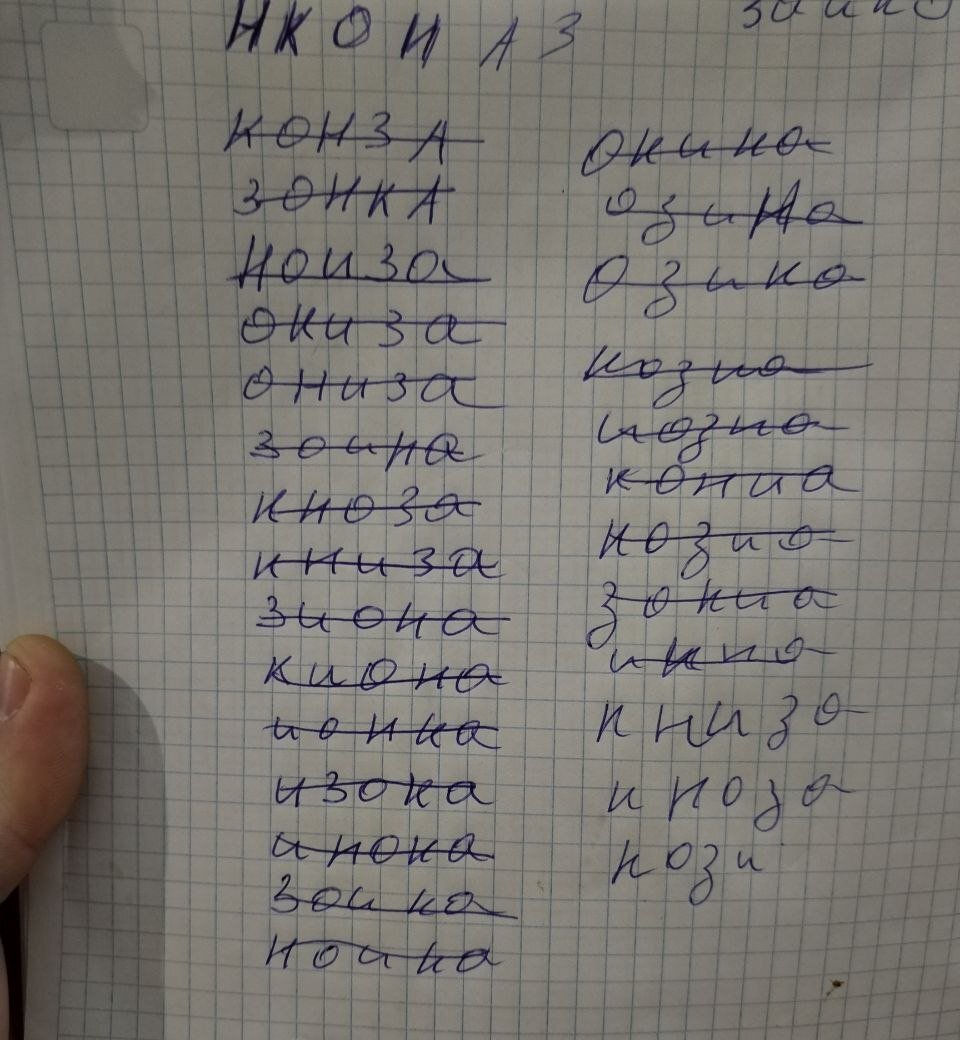 НКОИ АЗ
КОНЗА
ЗОНКА
НОИЗА
окиза
ониза
зоина
кноза
книза
зиона
киона
ионка
изока
инока
зоика
ноика
окина
озина
озика
козиа
кониа
нозиа
зокиа
икна
низа
нози